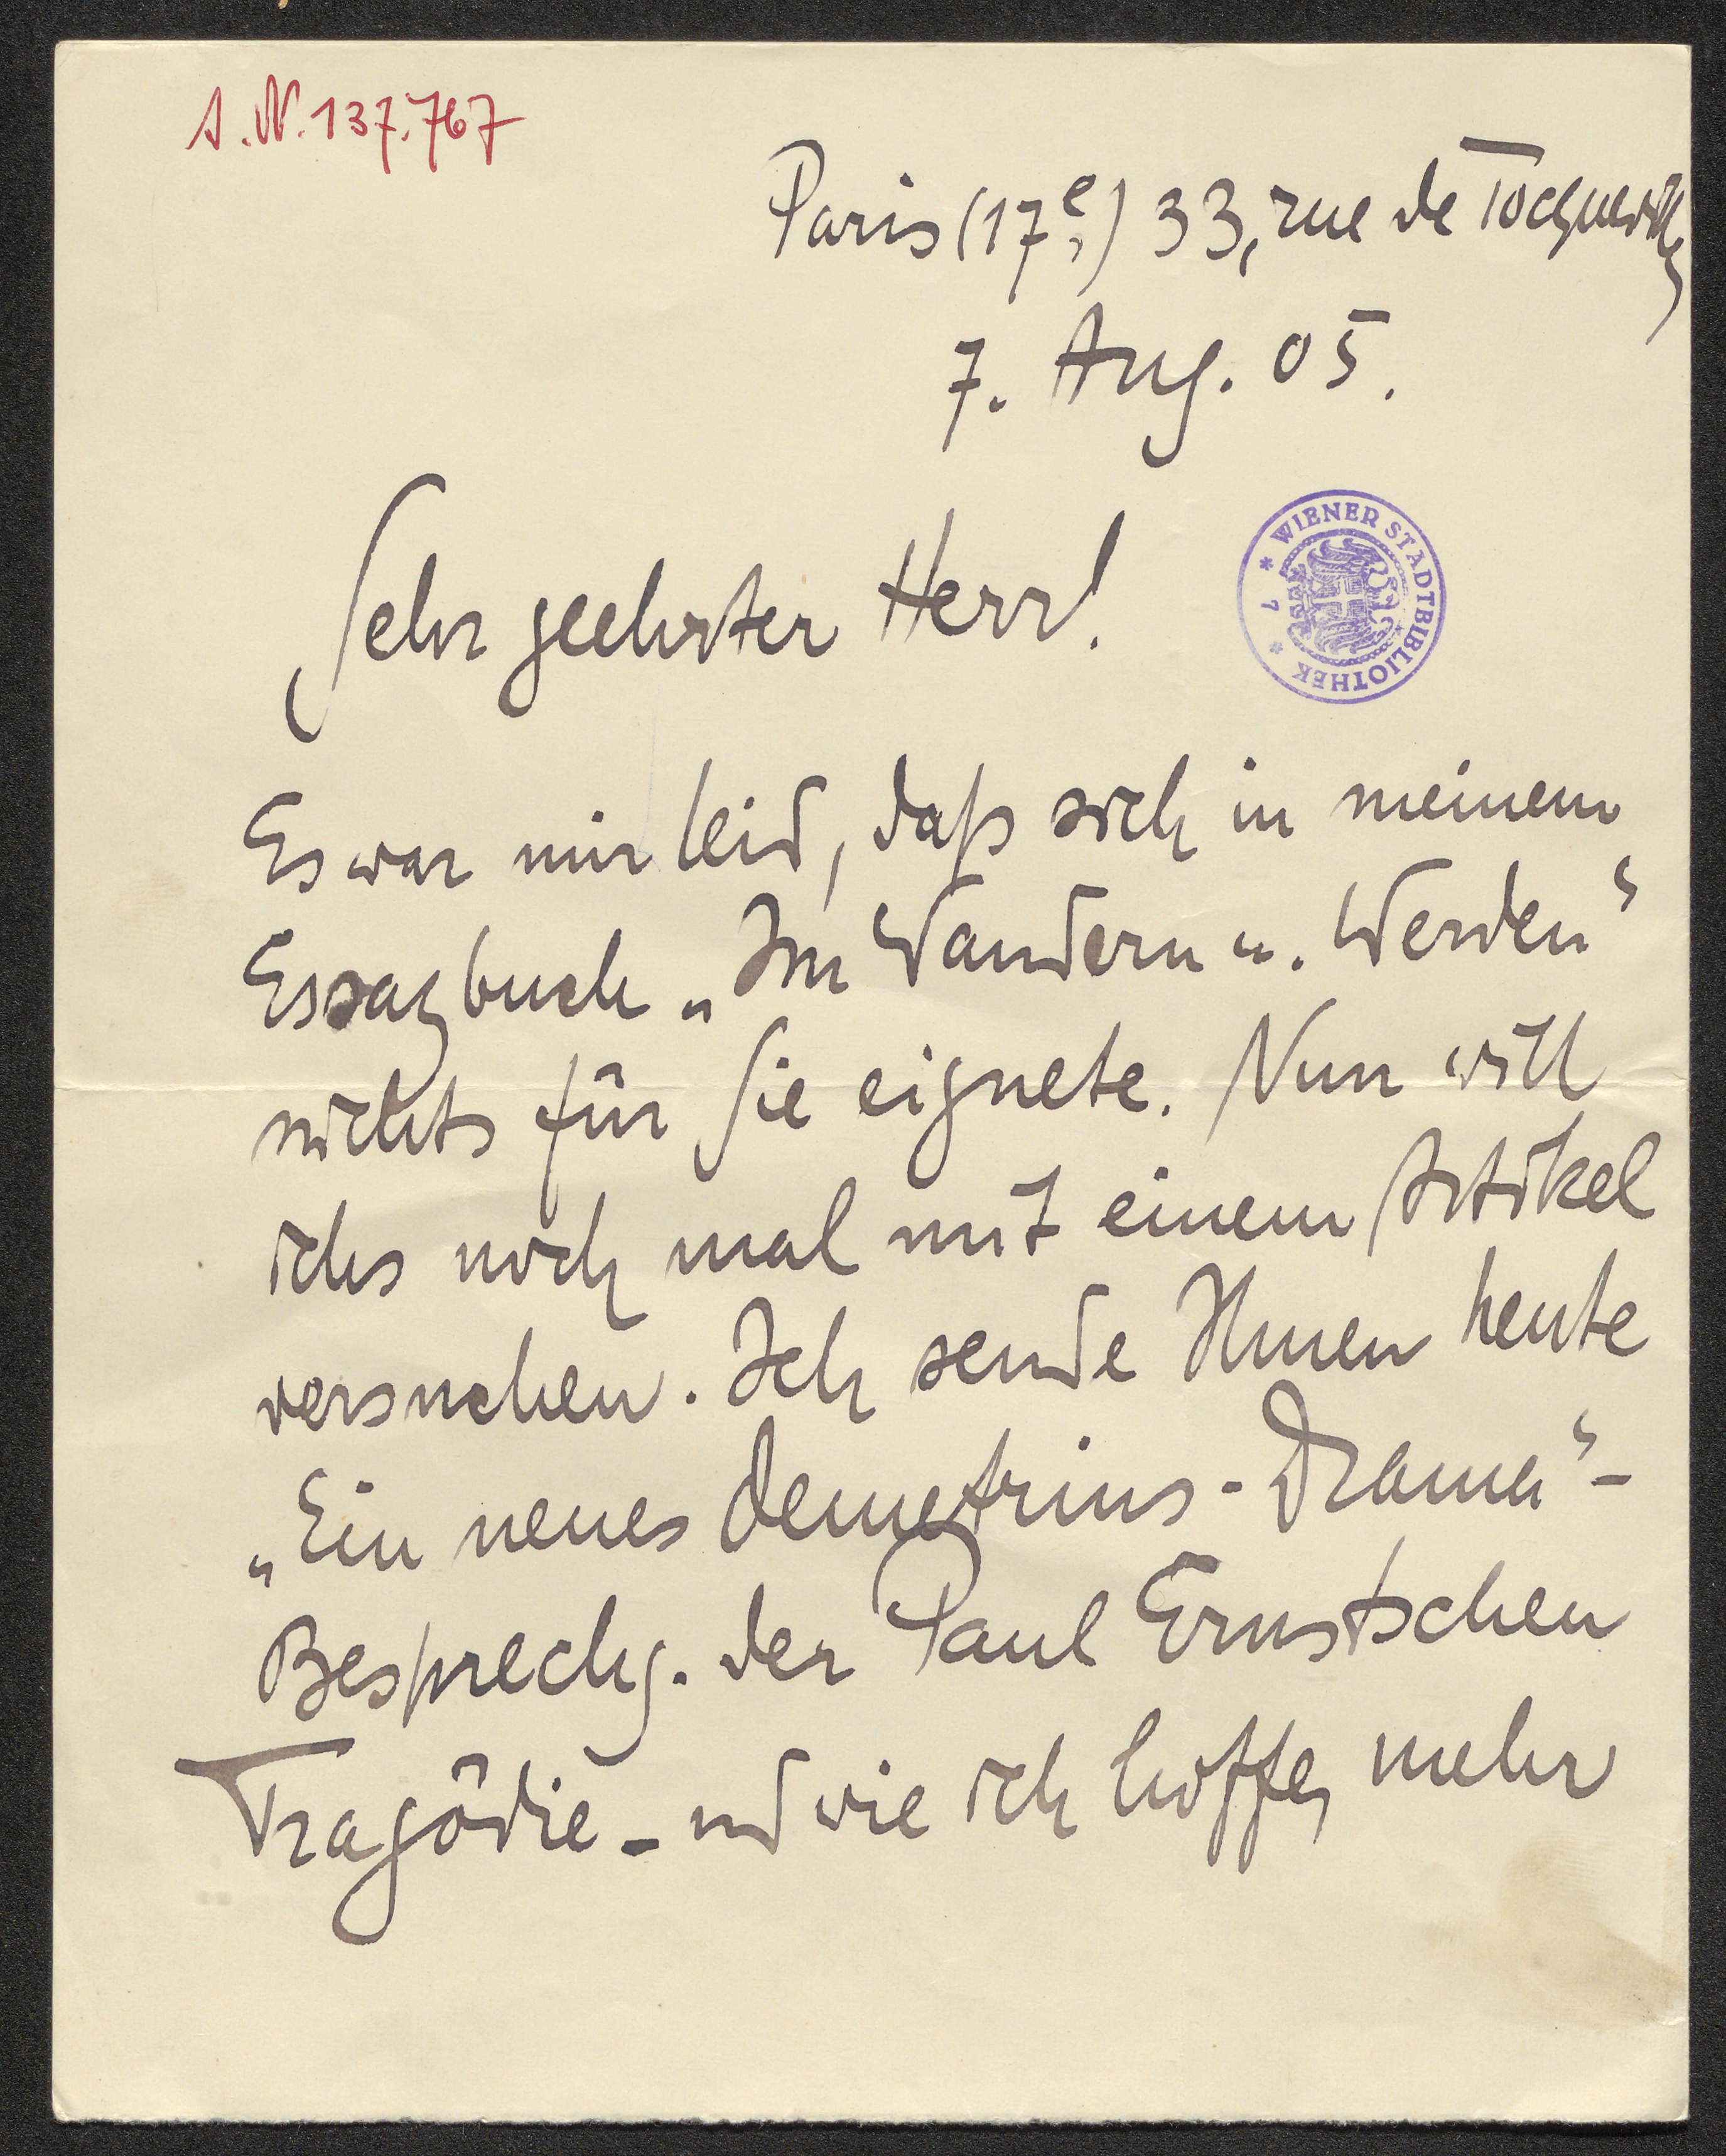 A.N. 137.767
Paris (17e,) 33, rue de Tocqueville,
7. Aug. 05.
Sehr geehrter Herr!
* WIENER STADTBIBLIOTHEK * 7
Es war mir leid, daß sich in meinem
Essaybuch „Im Wandern u. Werden“
nichts für Sie eignete. Nun will
ichs noch mal mit einem Artikel
versuchen. Ich sende Ihnen heute
„Ein neues Demetrius-Drama“ -
Besprechg. der Paul Ernstschen
Tragödie - und wie ich hoffe, mehr